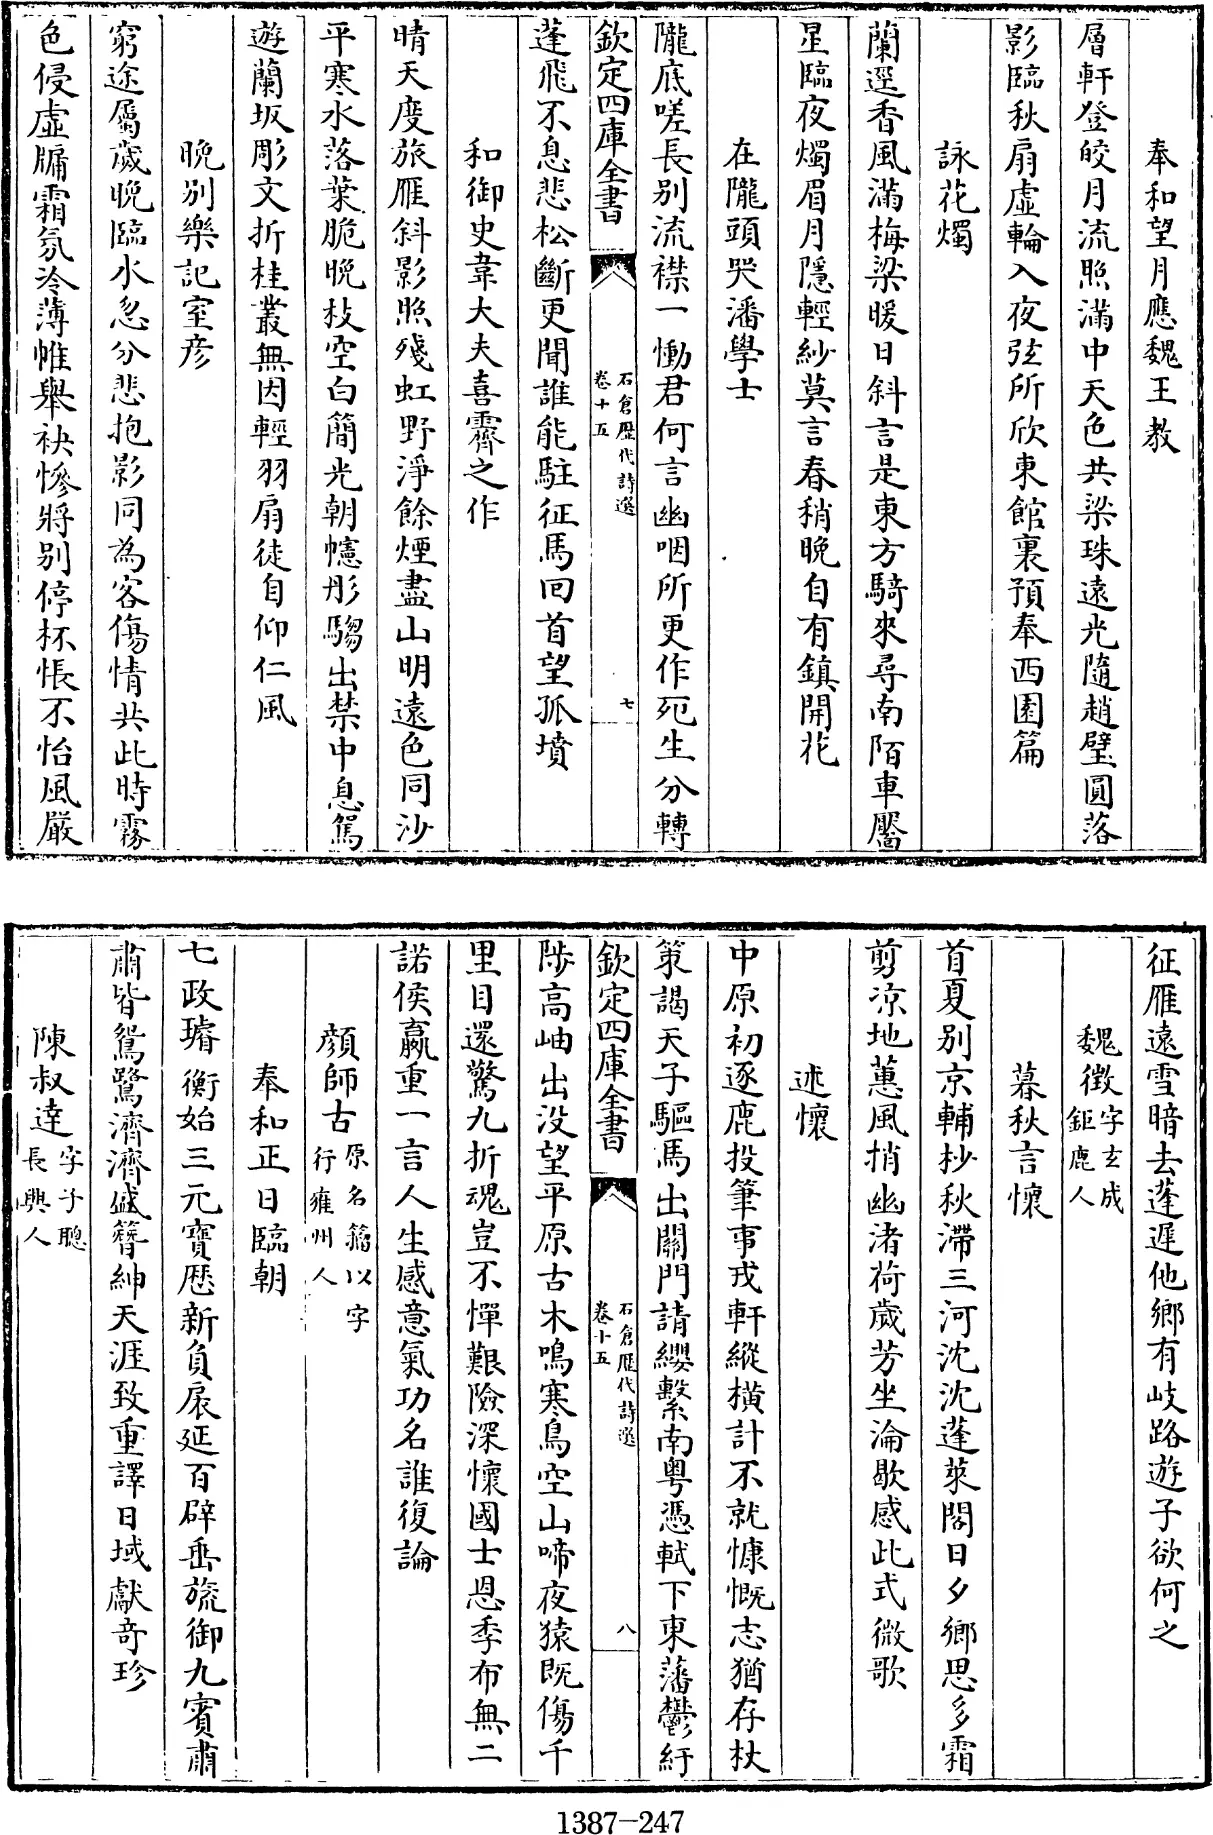 奉和望月應魏王教
層軒登皎月流照滿中天色共梁珠遠光隨趙璧圓落
影臨秋扇虛輪入夜弦所欣東館裏預奉西園篇
詠花燭
蘭逕香風滿梅梁暖日斜言是東方騎來尋南陌車靨
星臨夜燭眉月隱輕紗莫言春稍晚自有鎮開花
在隴頭哭潘學士
隴底嗟長别流襟一慟君何言幽咽所更作死生分轉
欽定四庫全書
石倉歷代詩選
卷十五
七
蓬飛不息悲松斷更聞誰能駐征馬回首望孤墳
和御史韋大夫喜霽之作
晴天度旅雁斜影照殘虹野淨餘煙盡山明遠色同沙
平寒水落葉脆晚枝空白簡光朝幰彤騶出禁中息駕
遊蘭坂彫文折桂叢無因輕羽扇徒自仰仁風
晩别樂記室彦
窮途屬歲晚臨水忽分悲抱影同為客傷情共此時霧
色侵虛牖霜氛冷薄帷舉袂慘將别停杯悵不怡風嚴
征雁遠雪暗去蓬遲他鄉有岐路遊子欲何之
魏徵
字玄成
鉅鹿人
暮秋言懷
首夏别京輔杪秋滯三河沈沈蓬萊閣日夕鄉思多霜
剪凉地蕙風捎幽渚荷歲芳坐淪歇感此式微歌
述懷
中原初逐鹿投筆事戎軒縱橫計不就慷慨志猶存杖
策謁天子驅馬出關門請纓繫南粤憑軾下東藩鬱紆
欽定四庫全書
石倉歷代詩選
卷十五
八
陟高岫出没望平原古木鳴寒鳥空山啼夜猿既傷千
里目還驚九折魂豈不憚艱險深懷國士恩季布無二
諾侯嬴重一言人生感意氣功名誰復論
顔師古
原名籀以字
行雍州人
奉和正日臨朝
七政璿衡始三元寶厯新負扆延百辟垂旒御九賓肅
肅皆鴛鷺濟濟盛簪紳天涯致重譯日域獻奇珍
陳叔達
字子聰
長興人
1387-247